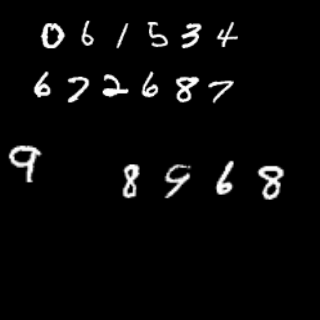 061534
672687
9 8968